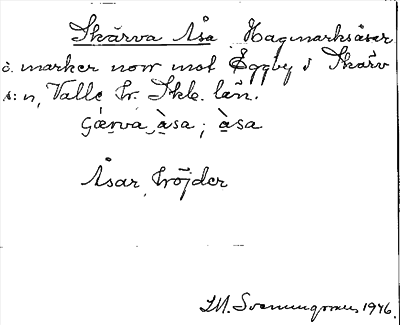 Skärva Åsa Hagmarksåsar
å marker norr mot Eggby i Skärv
s:n, Valle hr. Skb. län.
Åsar, höjder
S.M. Svenungsson, 1946.